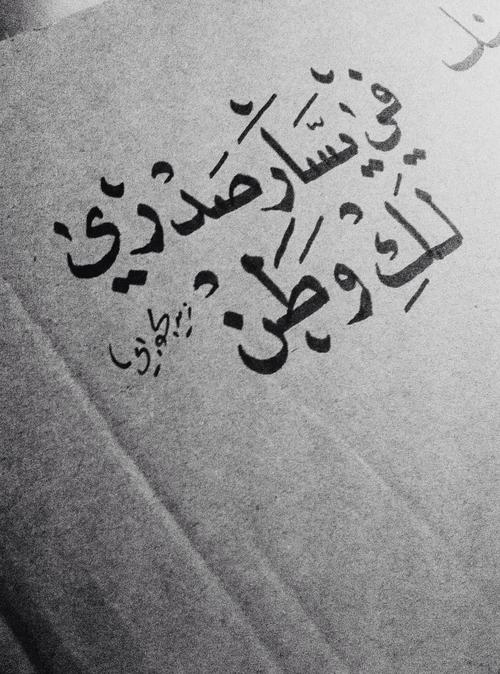 في يسَّار صَدْري
لَكِ وَطَنْ